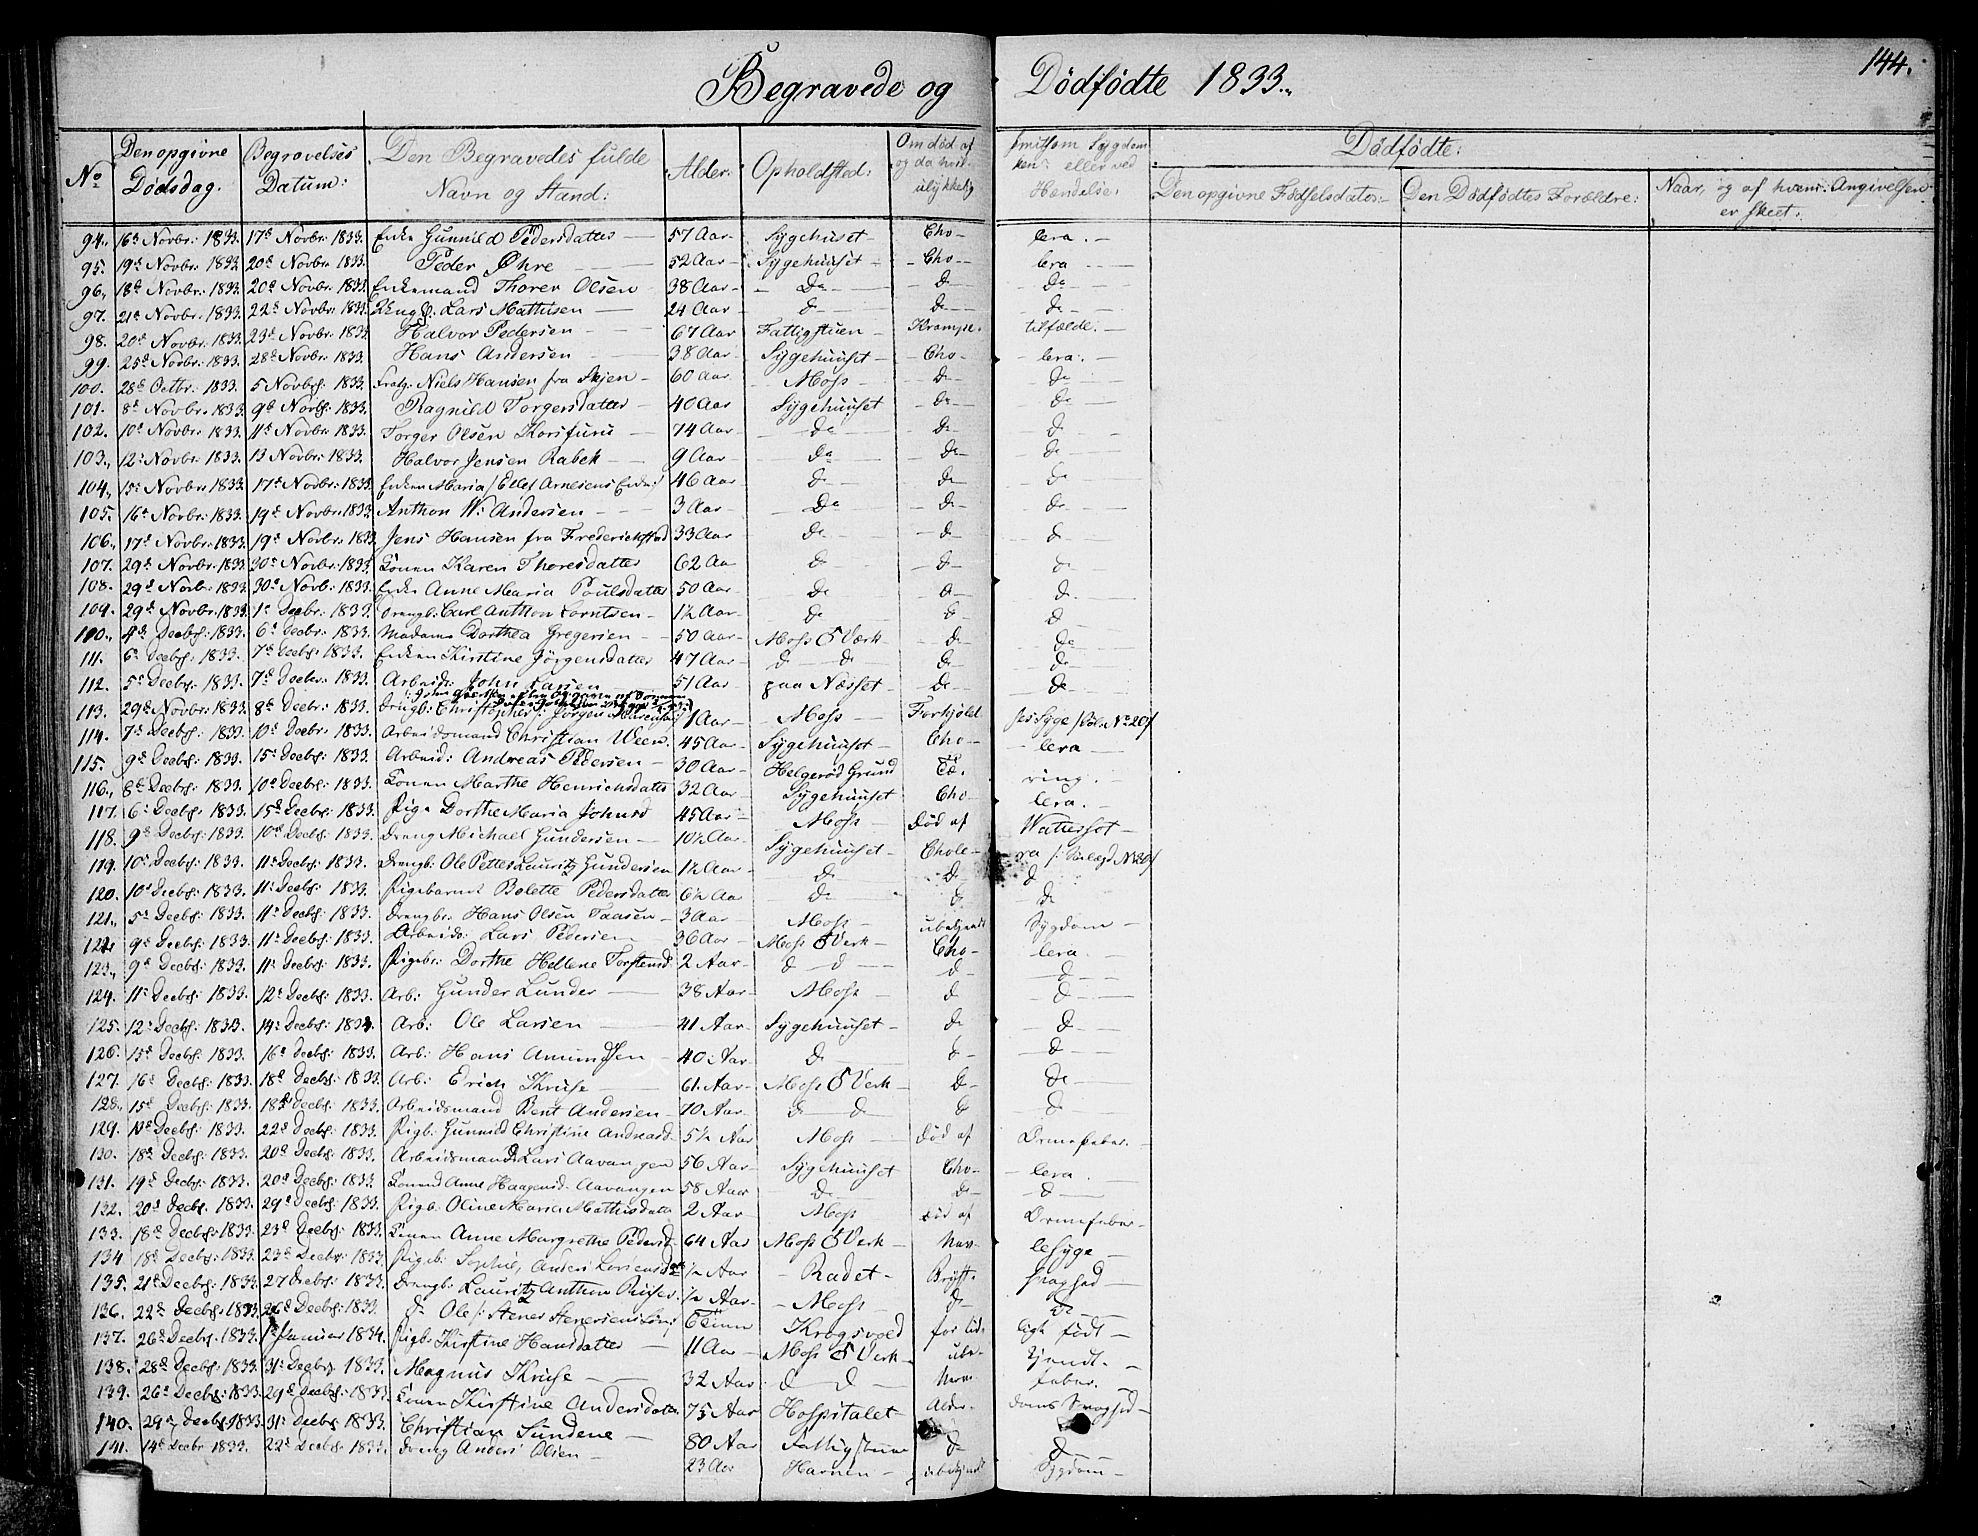 144.
Begravede og Dödfödte 1833.
No Den opgivne Dödsdag. Begravelses Datum: Den Begravedes fulde Navn og Stand: Alder: Opholdsted: Om död af smitsom Sygdom og da hvilken: eller ved ulykkelig Hændelse: Dödfödte:
Den opgivne Födselsdato: Den Dödfödtes Forældre: Naar, og af hvem Angivelsen er skeet:
94. 16d Novbr: 1833. 17d Novbr: 1833. Enke Gunnild Pedersdatter 57 Aar Sygehuset Cholera.
95. 19d Novbr: 1832 20d Novbr: 1833. Peder Öhre 52 Aar Sygehuuset Cholera
96. 18d Novbr: 1833 20d Novbr: 1833 Enkemand Thorer Olsen 38 Aar Do Do Do
97. 21d Novbr: 1833. 22d Novbr: 1833 Lars Mathisen 24 Aar Do Do Do
98. 20d Novbr: 1833. 23d Novbr: 1833 Halvor Pedersen 67 Aar Fattigstuen Krampetilfælde.
99. 25d Novbr: 1833 28d Novbr: 1833. Hans Andersen 38 Aar Sygehuuset Cholera.
100. 28d Octbr: 1833. 5 Novbr: 1833. Niels Hansen fra Skjen 60 Aar Moss Do Do
101. 8d Novbr. 1833. 9d Novbr: 1833. Ragnild Torgersdatter 40 Aar Sygehuuset Do Do
102. 10d Novbr: 1833. 11d Novbr: 1833. Torger Olsen Korsfuru 74 Aar Do Do Do
103. 12: Novbr: 1833. 13 Novbr: 1833. Halvor Jensen Rabek 9 Aar Do Do Do
104. 15: Novbr: 1833 17d Novbr: 1833. Enken Maria / Ellef Arnesens Enke / 46 Aar Do Do Do
105. 16d Novbr: 1833. 19d Novbr: 1833. Anthon W: Andersen 3 Aar Do Do Do
106. 17d Novbr: 1833. 19d Novbr: 1833. Jens Hansen fra Frederichstad 33 Aar Do Do Do
107. 29d Novbr: 1833 30d Novbr: 1833 Konen Karen Thoresdatter 62 Aar Do Do Do
108. 29d Novbr: 1833 30d Novb: 1833. Enke Anne Maria Poulsdatter 50 Aar Do Do Do
109. 29d Novbr: 1833 1d Decbr: 1833. Drengb: Carl Anthon Lorntsen 1½ Aar Do Do Do
110. 4d Decbr: 1833. 6d Decbr: 1833. Madame Dorthea Gregersen 50 Aar Moss Værk Do Do
111. 6d Decbr: 1833. 7d Decbr: 1833. Enken Kirstine Jörgensdatter 47 Aar Do Do Do Do
112. 5d Decbr: 1833. 7d Decbr: 1833. Arbeid: John Larsen 51 Aar paa Næsset Do Do
113. 29d Novbr: 1833. 8d Decbr: 1833. Drengb: Christopher 1 Aar Moss Forkjölelses Syge
114. 7d Decbr: 1833. 10d Decbr: 1833. Arbeidsmand Christian Ween. 45 Aar Sygehuuset Cholera
115. 9d Decbr: 1833. 15d Decbr: 1833. Arbeid: Andreas Pedersen 30 Aar Helgeröd Grund Tæring.
116. 8d Decbr: 1833. 10d Decbr: 1833. Konen Marthe Henrichsdatter 32 Aar Sygehuuset Cholera.
117. 6: Decbr: 1833. 15d Decbr: 1833. Pige Dorthe Maria Johnsd 45 Aar Moss Död af Vattersot
118. 9d Decbr: 1833. 10d Decbr: 1833. Dreng Michael Gundersen 10½ Aar Sygehuuset Cholera
119. 10: Decbr: 1833. 11: Decbr: 1833. Drengb: Ole Petter Lauritz Gundersen 1½ Aar Do Do Do
120. 10d Decbr: 1833. 11: Decbr: 1833. Pigebarnet Bolette Pedersdatter 6½ Aar Do Do Do
121. 5d Decbr: 1833. 11: Decbr: 1833. Drengbr: Hans Olsen Taasen 3 Aar Moss ubekjendt Sygdom
122. 9d Decbr: 1833. 11: Decbr: 1833. Arbeids: Lars Pedersen 36 Aar Moss Verk Cholera.
123. 9d Decbr: 1833. 11: Decbr: 1833. Pigebr: Dorthe Hellene Torstensd 2 Aar Do Do Do Do
124. 11: Decbr: 1833. 12: Decbr: 1833. Arb: Gunder Lunder 38 Aar Moss Do Do
125. 12: Decbr: 1833. 14: Decbr: 1833. Arb: Ole Larsen 41 Aar Sygehuuset Do Do
126. 15d Decbr: 1833. 16d Decbr: 1833. Arb: Hans Amundsen 40 Aar Do Do Do
127. 16d Decbr: 1833. 18d Decbr: 1833. Arb: Erich Kruse 61 Aar Moss Verk Do Do
128. 15d Decbr: 1833. 18d Decbr: 1833. Arbeidsmand Bent Andersen 70 Aar Do Do Do Do
129. Decbr: 1833. 22d Decbr: 1833. Pigb: Gunnild Christine Andreasd 5½ Aar Moss Död af Ormefeber.
130. 18d Decbr: 1833. 20d Decbr: 1833. Arbeidsmand Lars Aavangen 56 Aar Sygehuuset Cholera
131. 19d Decbr: 1833. 20d Decbr: 1833. Konen Anne Haagensd: Aavangen 58 Aar Do Do Do
132. 20d Decbr: 1833. 29d Decbr: 1833. Pigb: Oline Maria Mathisdatter 2 Aar Moss Död af Ormefeber
133. 18d Decbr: 1833. 23d Decbr: 1833. Konen Anne Margrethe Pedersd 64 Aar Moss Verk
134 18d Decbr: 1833. 23d Decbr: 1833. Pigeb: Sophie, Anders Larsens ½ Aar Radet Brystsvaghed
135. 21d Decbr: 1833. 27 Decbr: 1833. Drengb: Lauritz Anthon ½ Aar Moss Do Do
136. 22d Decbr: 1833. 26d Decbr: 1833. Do Ole /: Stener Stenersens Sön / 6 Timer Krogsvold for tidligt födt
137. 26d Decbr: 1833. 1d Januar 1834. Pigb: Kirstine Hansdatter 11 Aar Moss Verk ubekjendt.
138. 28d Decbr: 1833. 31: Decbr: 1833. Magnus Kruse 32 Aar Do Do feber.
139. 26d Decbr: 1833. 29d Decbr: 1833 Konen Kirstine Andersdatter 75 Aar Hospitalet Alderdoms Svaghed
140. 29d Decbr: 1833. 31: Decbr: 1833. Christian Sundene 80 Aar Fattigstuen Do Do
141. 14d Decbr 1833. 22d Decbr: 1833. Dreng Anders Olsen 23 Aar Havnen ubekjendt Sygdom